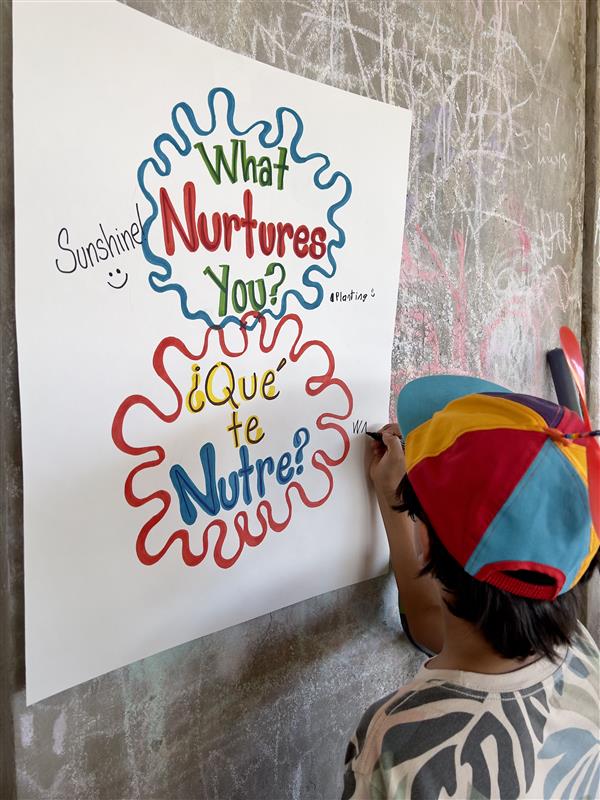 What
Nurtures
You?
Sunshine!
Planting
¿Qué
te
Nutre?
WA